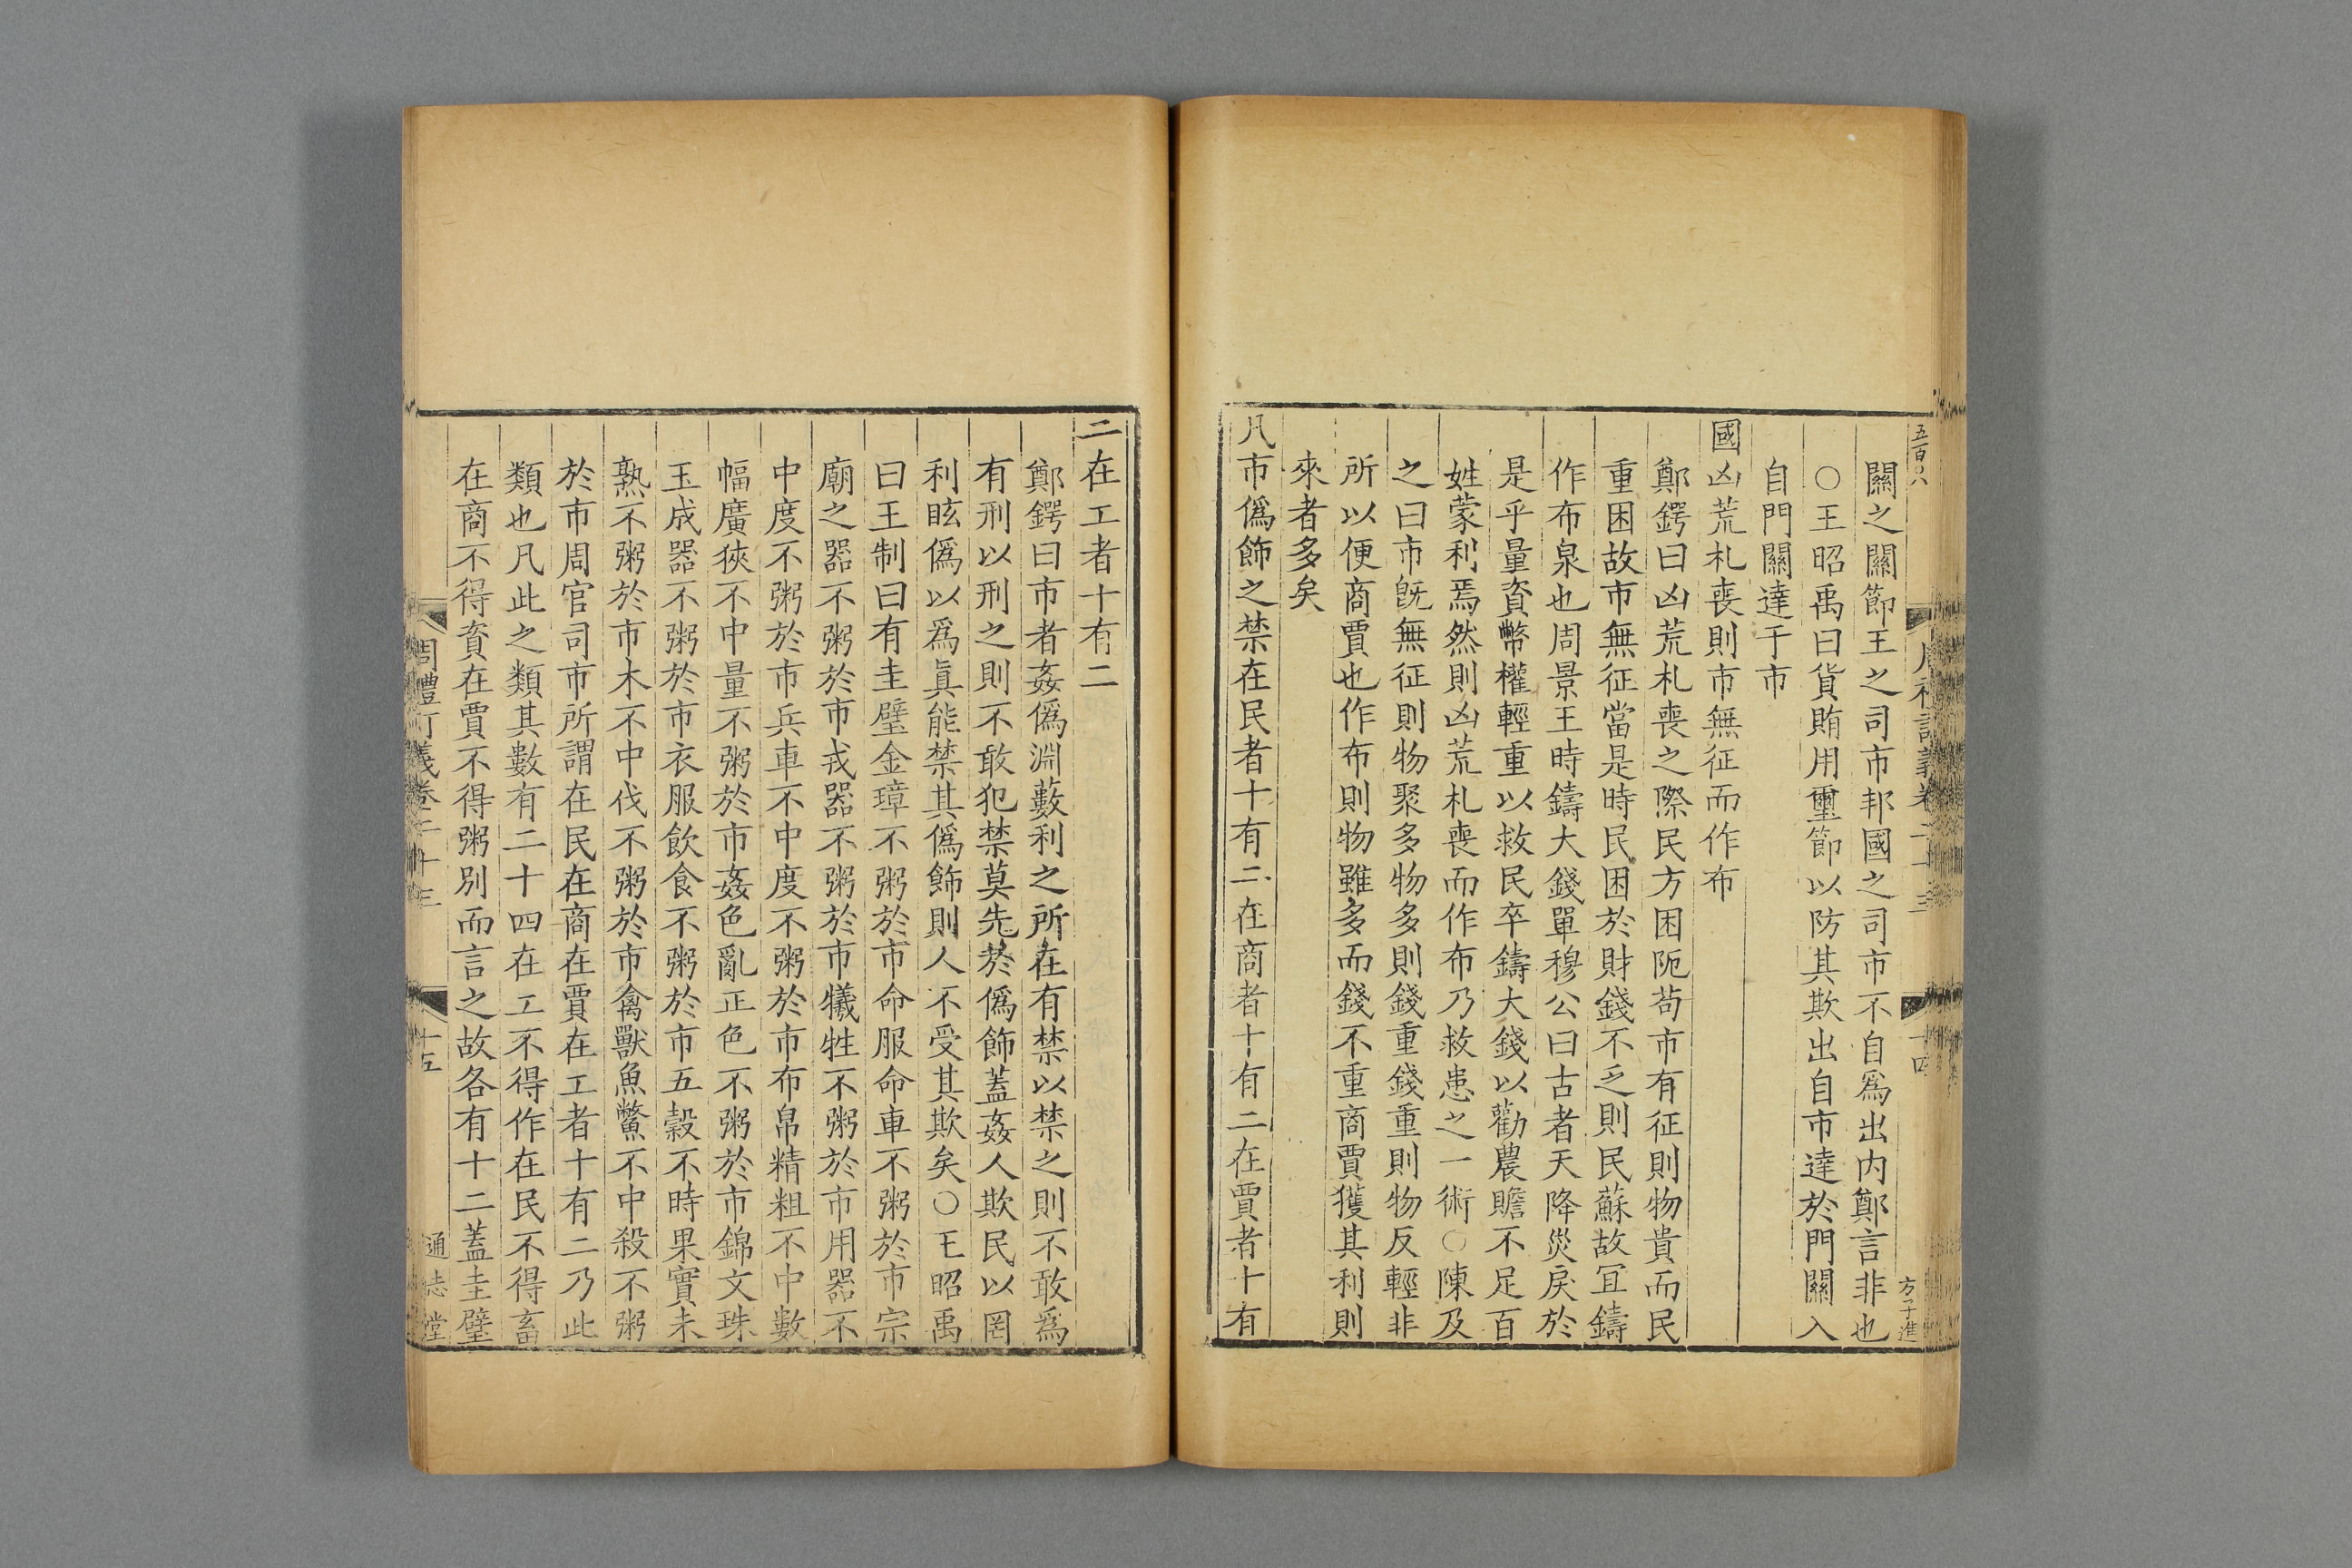 五百〇八
周禮訂義卷二十三
十四
方子進
關之關節王之司市邦國之司市不自爲出内鄭言非也
○王昭禹曰貨賄用璽節以防其欺出自市達於門關入
自門關達于市
國凶荒札喪則市無征而作布
鄭鍔曰凶荒札喪之際民方困阨苟市有征則物貴而民
重困故市無征當是時民困於財錢不乏則民蘇故冝鑄
作布泉也周景王時鑄大錢單穆公曰古者天降災戾於
是乎量資幣權輕重以救民卒鑄大錢以勸農贍不足百
姓蒙利焉然則凶荒札喪而作布乃救患之一術○陳及
之曰市旣無征則物聚多物多則錢重錢重則物反輕非
所以便商賈也作布則物雖多而錢不重商賈獲其利則
來者多矣
凡市僞飾之禁在民者十有二在商者十有二在賈者十有
二在工者十有二
鄭鍔曰市者姦僞淵藪利之所在有禁以禁之則不敢爲
有刑以刑之則不敢犯禁莫先於僞飾蓋姦人欺民以罔
利眩僞以爲眞能禁其僞飾則人不受其欺矣○王昭禹
曰王制曰有圭璧金璋不粥於市命服命車不粥於市宗
廟之器不粥於市戎器不粥於市犧牲不粥於市用器不
中度不粥於市兵車不中度不粥於市布帛精粗不中數
幅廣狹不中量不粥於市姦色亂正色不粥於市錦文珠
玉成器不粥於市衣服飲食不粥於市五穀不時果實未
熟不粥於市木不中伐不粥於市禽獸魚鼈不中殺不粥
於市周官司市所謂在民在商在賈在工者十有二乃此
類也凡此之類其數有二十四在工不得作在民不得畜
在商不得資在賈不得粥別而言之故各有十二蓋圭璧
周禮訂義卷二十三
十五
通志堂